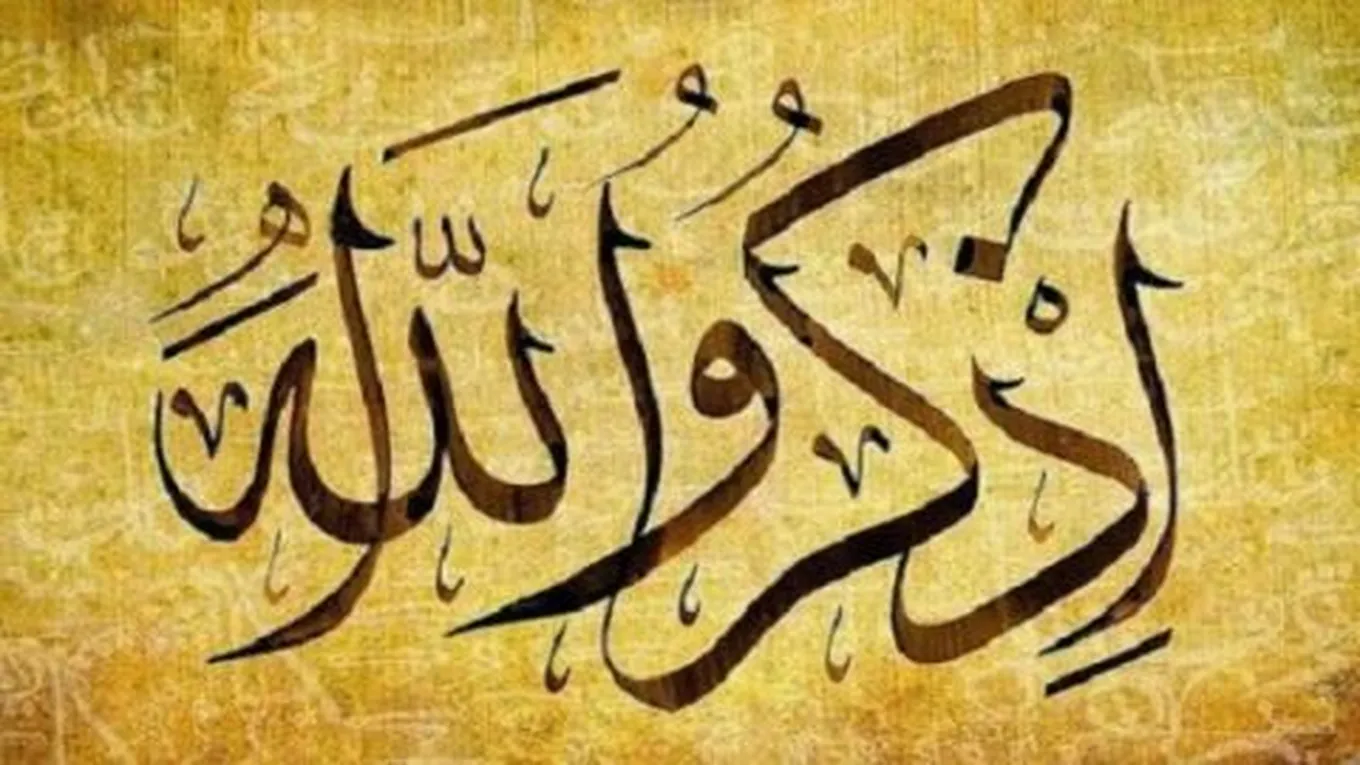 اِذْكُرُوا اللّٰهَ